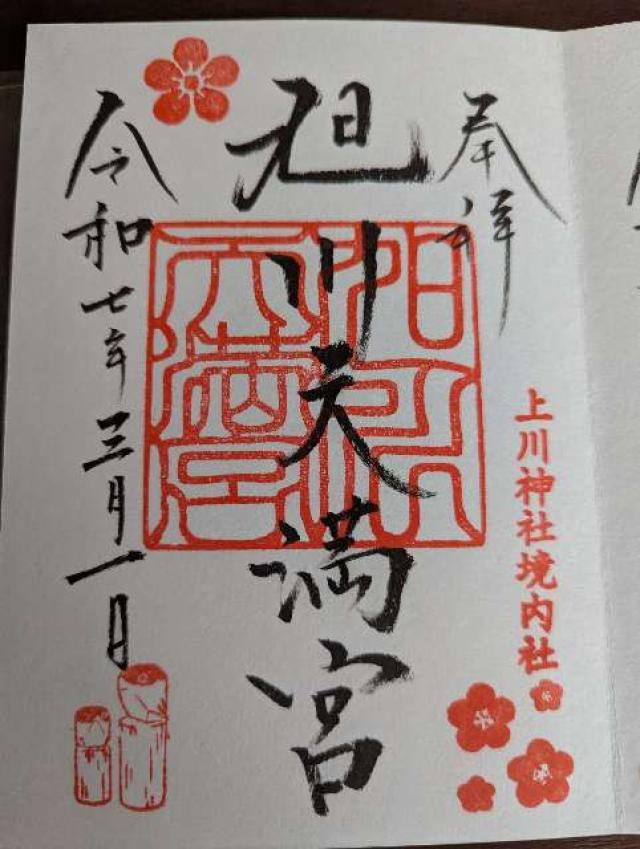 奉拝
上川神社境内社
旭川天満宮
令和七年三月一日